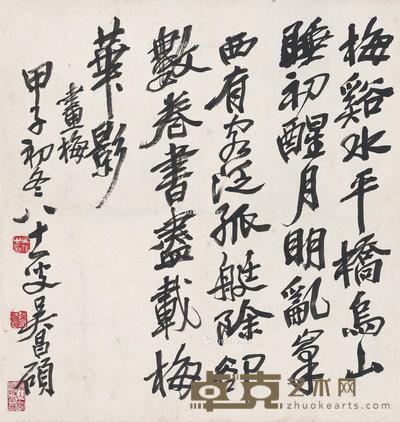 梅谿水平橋烏山
睡初醒月明亂峯
西有客泛孤艇除卻
數卷書盡載梅
華影
畫梅
甲子初冬八十一叟吳昌碩
卓克艺术网
www.zhuokearts.com